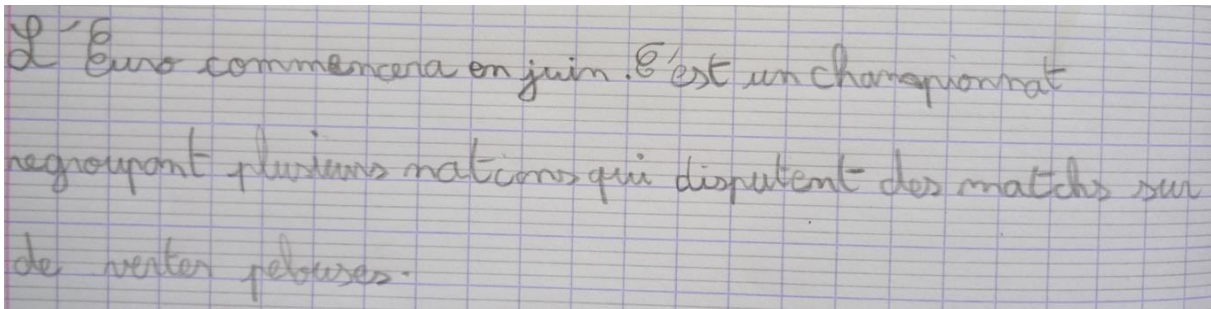 L'Euro commencera en juin. C'est un championnat
regroupant plusieurs nations qui disputent des matchs sur
de vertes pelouses.